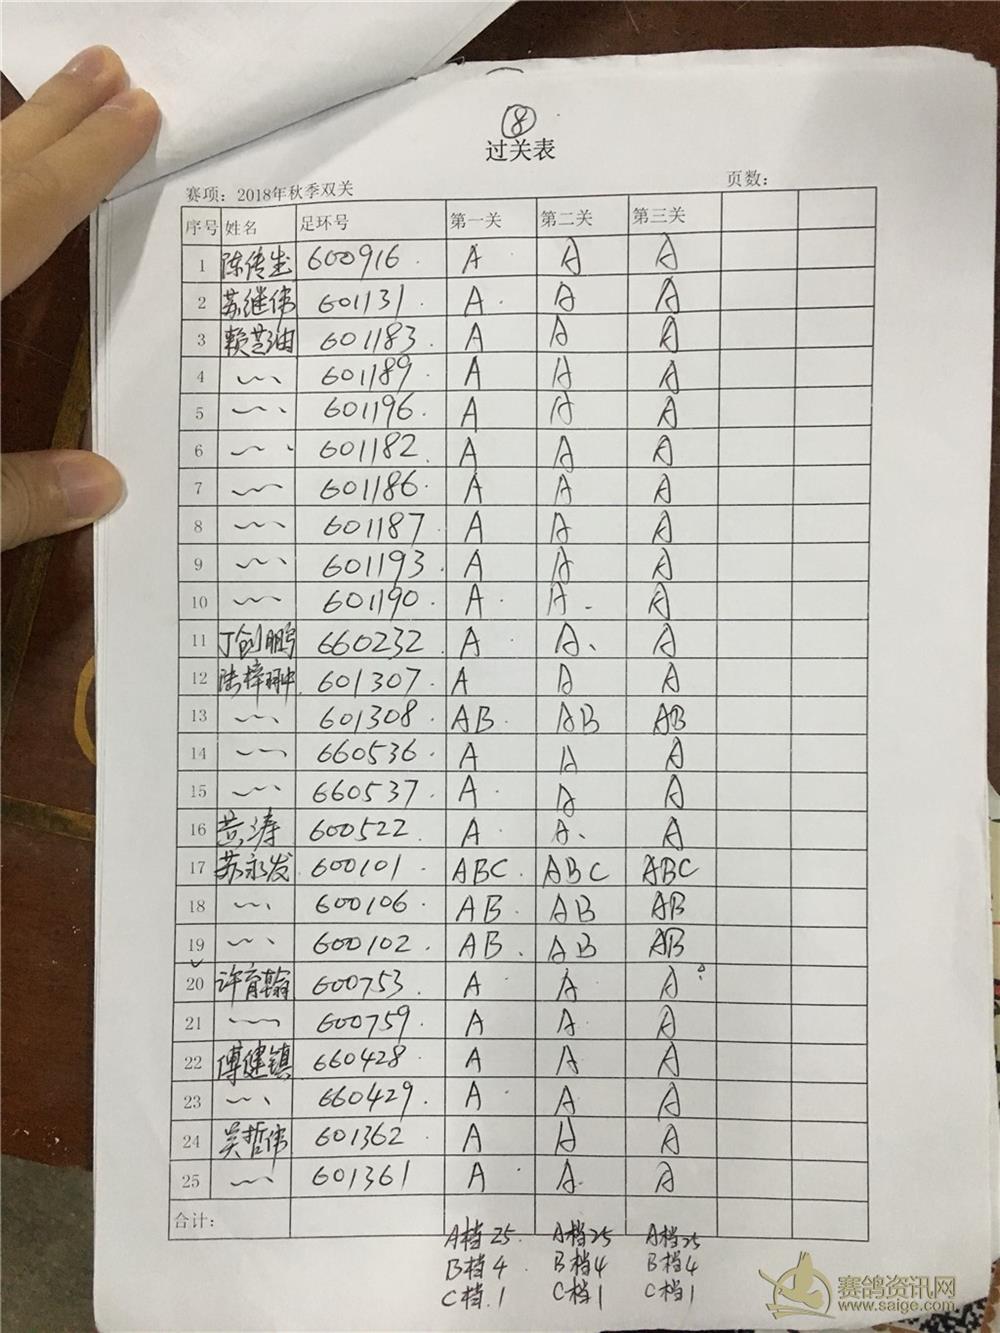 ⑧
过关表
赛项：2018年秋季双关 页数：
序号 姓名 足环号 第一关 第二关 第三关
1 陈传生 600916 A A A
2 苏继伟 601131 A A A
3 赖楚由 601183 A A A
4 601189 A A A
5 601196 A A A
6 601182 A A A
7 601186 A A A
8 601187 A A A
9 601193 A A A
10 601190 A A A
11 丁剑鹏 660232 A A A
12 陆梓翀 601307 A A A
13 601308 AB AB AB
14 660536 A A A
15 660537 A A A
16 黄涛 600522 A A A
17 苏永发 600101 ABC ABC ABC
18 600106 AB AB AB
19 600102 AB AB AB
20 许育翰 600753 A A A
21 600759 A A A
22 傅健镇 660428 A A A
23 660429 A A A
24 吴哲伟 601362 A A A
25 601361 A A A
合计：
A档25 A档25 A档25
B档4 B档4 B档4
C档1 C档1 C档1
赛鸽资讯网
www.saige.com